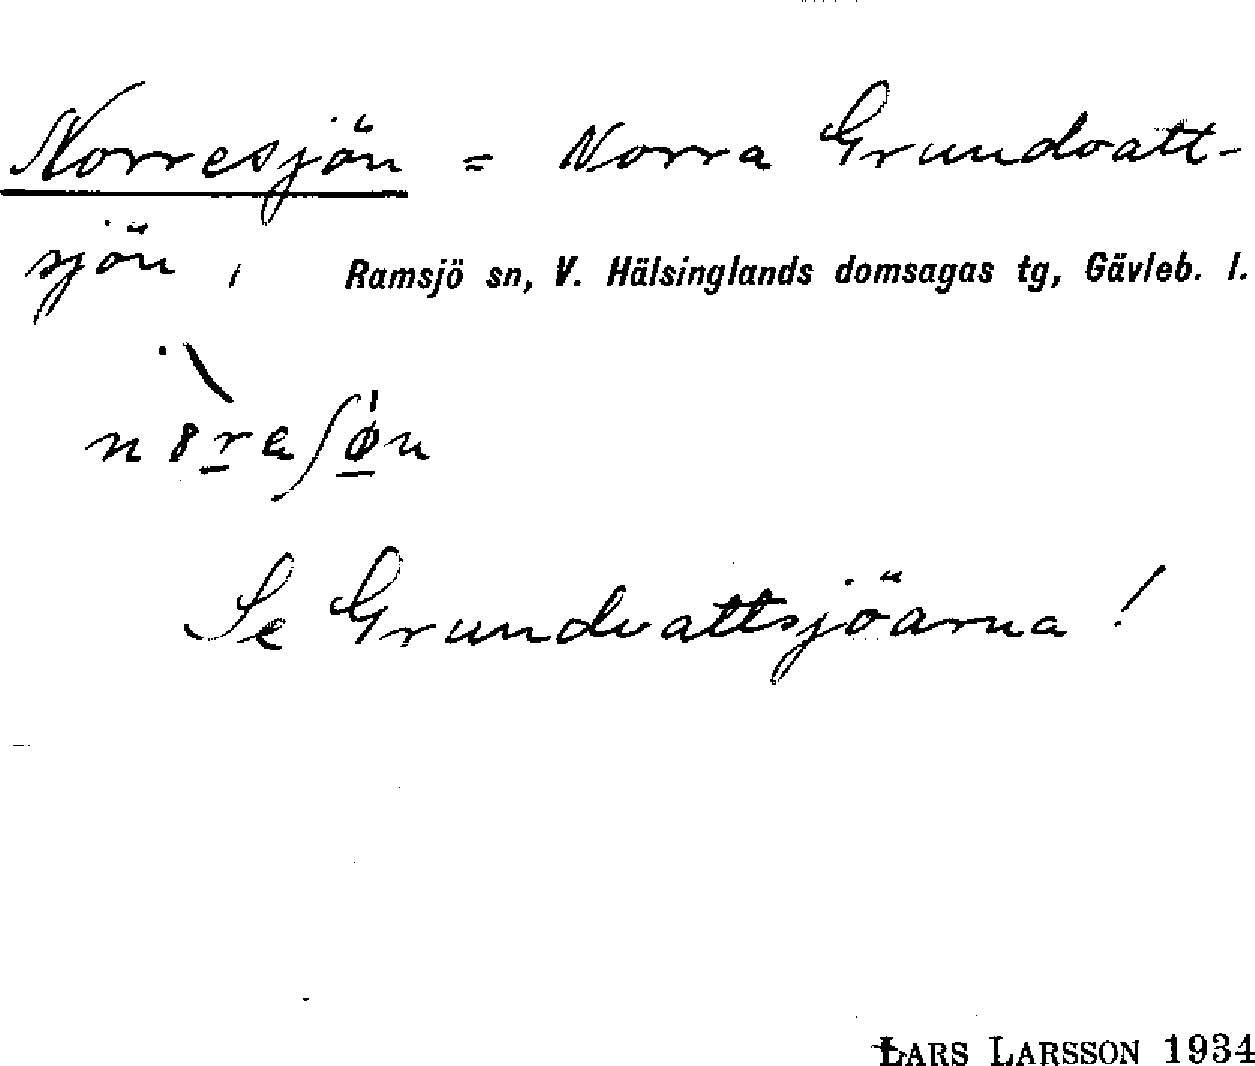 Norresjön = Norra Grundvatt-
sjön, Ramsjö sn, V. Hälsinglands domsagas tg, Gävleb. l.
n8reʃøn
Se Grundvattsjöarna!
LARS LARSSON 1934